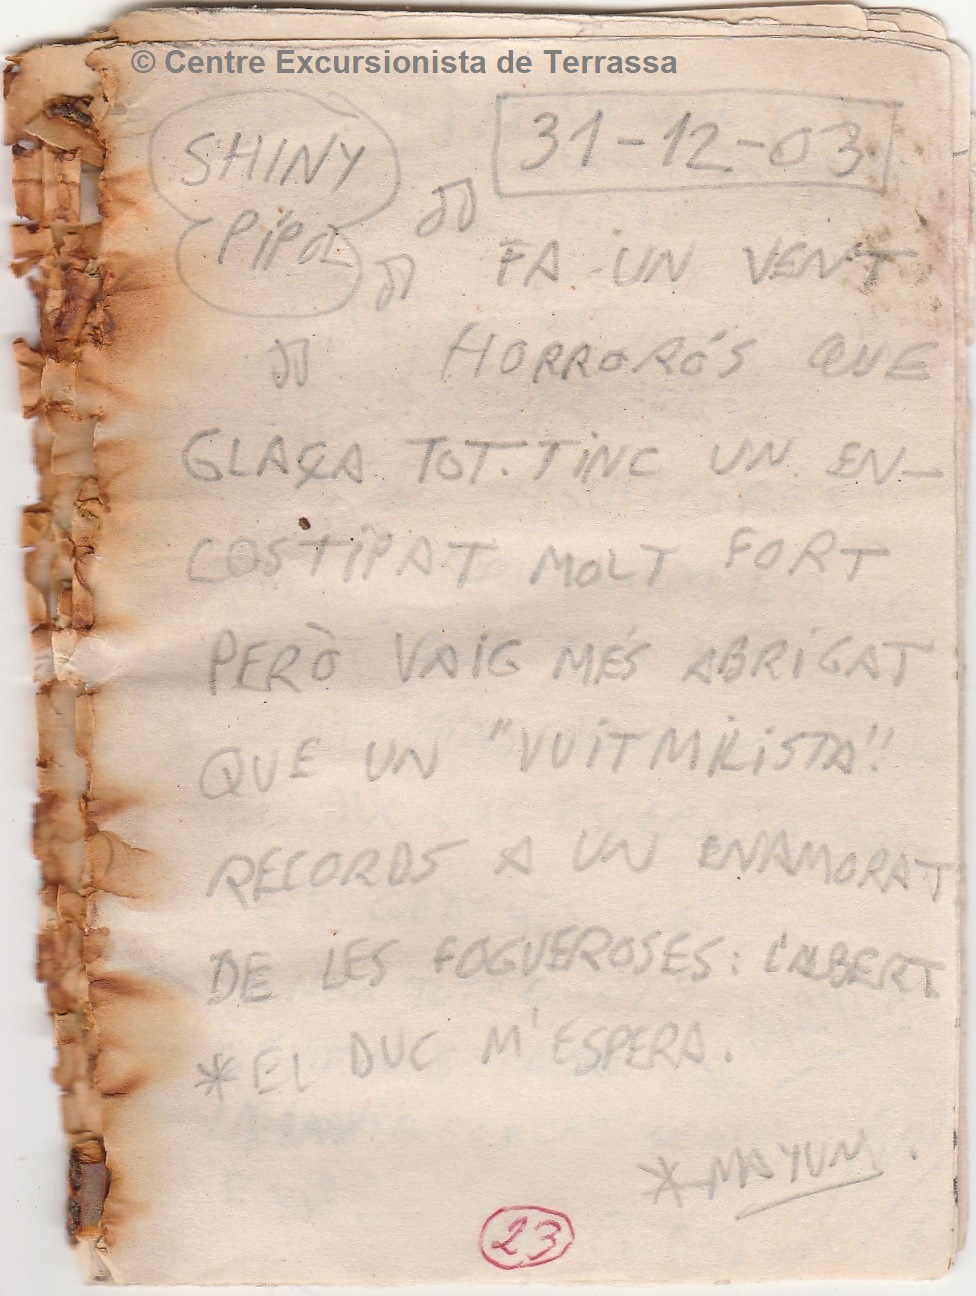 © Centre Excursionista de Terrassa
SHINY
PIPOL
31-12-03
FA UN VENT
HORRORÓS QUE
GLAÇA TOT. TINC UN EN-
COSTIPAT MOLT FORT
PERÒ VAIG MÉS ABRIGAT
QUE UN "VUITMILISTA".
RECORDS A UN ENAMORAT
DE LES FOGUEROSES: L'ALBERT.
* EL DUC M'ESPERA.
* MAYUM.
23